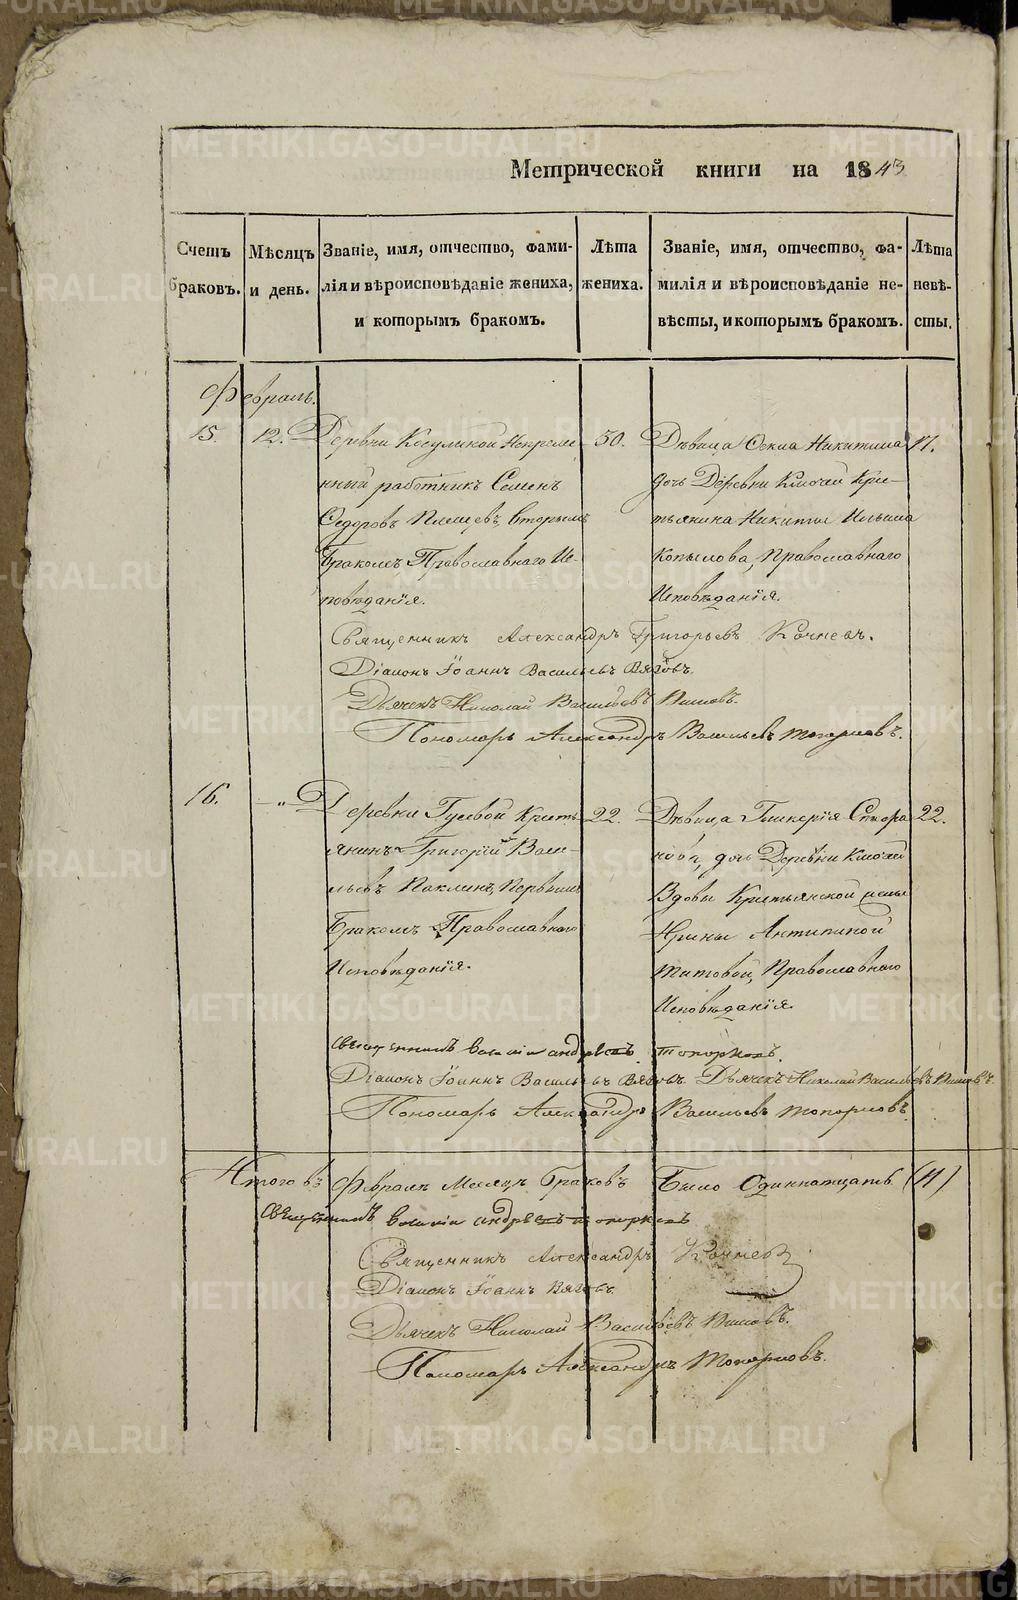 Метрической книги на 1843
Счетъ браковъ.
Мѣсяцъ и день.
Званіе, имя, отчество, фами-
лія и вѣроисповѣданіе жениха,
и которымъ бракомъ.
Лѣта жениха.
Званіе, имя, отчество, фа-
милія и вѣроисповѣданіе не-
вѣсты, и которымъ бракомъ.
Лѣта невѣ-
сты.
Февраль.
15. 12.
Деревни Косулиной Непреме
нный работникъ Семенъ
Федоровъ Плешевъ, вторымъ
Бракомъ Православнаго Ис-
повѣданія.
50.
Дѣвица Никитина
дочь Деревни Ключей Кре-
стьянина Никиты Ильина
Копылова, Православнаго
Исповѣданія.
17.
Священникъ Александръ Григорьевъ Кочневъ.
Діаконъ Іоаннъ Васильевъ
Дьячекъ Николай Васильевъ
Пономарь Александръ Васильевъ Топорковъ.
16. — „ —
Деревни Гусевой Кресть
янинъ Григорій Васи-
льевъ Паклинъ, Первымъ
Бракомъ Православнаго
Исповѣданія.
22.
Дѣвица Гликерія
дочь Деревни Ключей
Вдовы Крестьянской жены
Ирины Антипиной
Титовой, Православнаго
Исповѣданія
22.
священникъ василій андреевъ топорковъ.
Діаконъ Іоаннъ Васильевъ Дьячекъ Николай Васильевъ
Пономарь Александръ Васильевъ Топорковъ
Итого въ Февралѣ Месяцѣ Браковъ Было Одиннатцать (11)
священникъ василій андреевъ топорковъ
Священникъ Александръ Кочневъ
Діаконъ Іоаннъ
Дьячекъ Николай Васильевъ
Пономарь Александръ Топорковъ.
METRIKI.GASO-URAL.RU